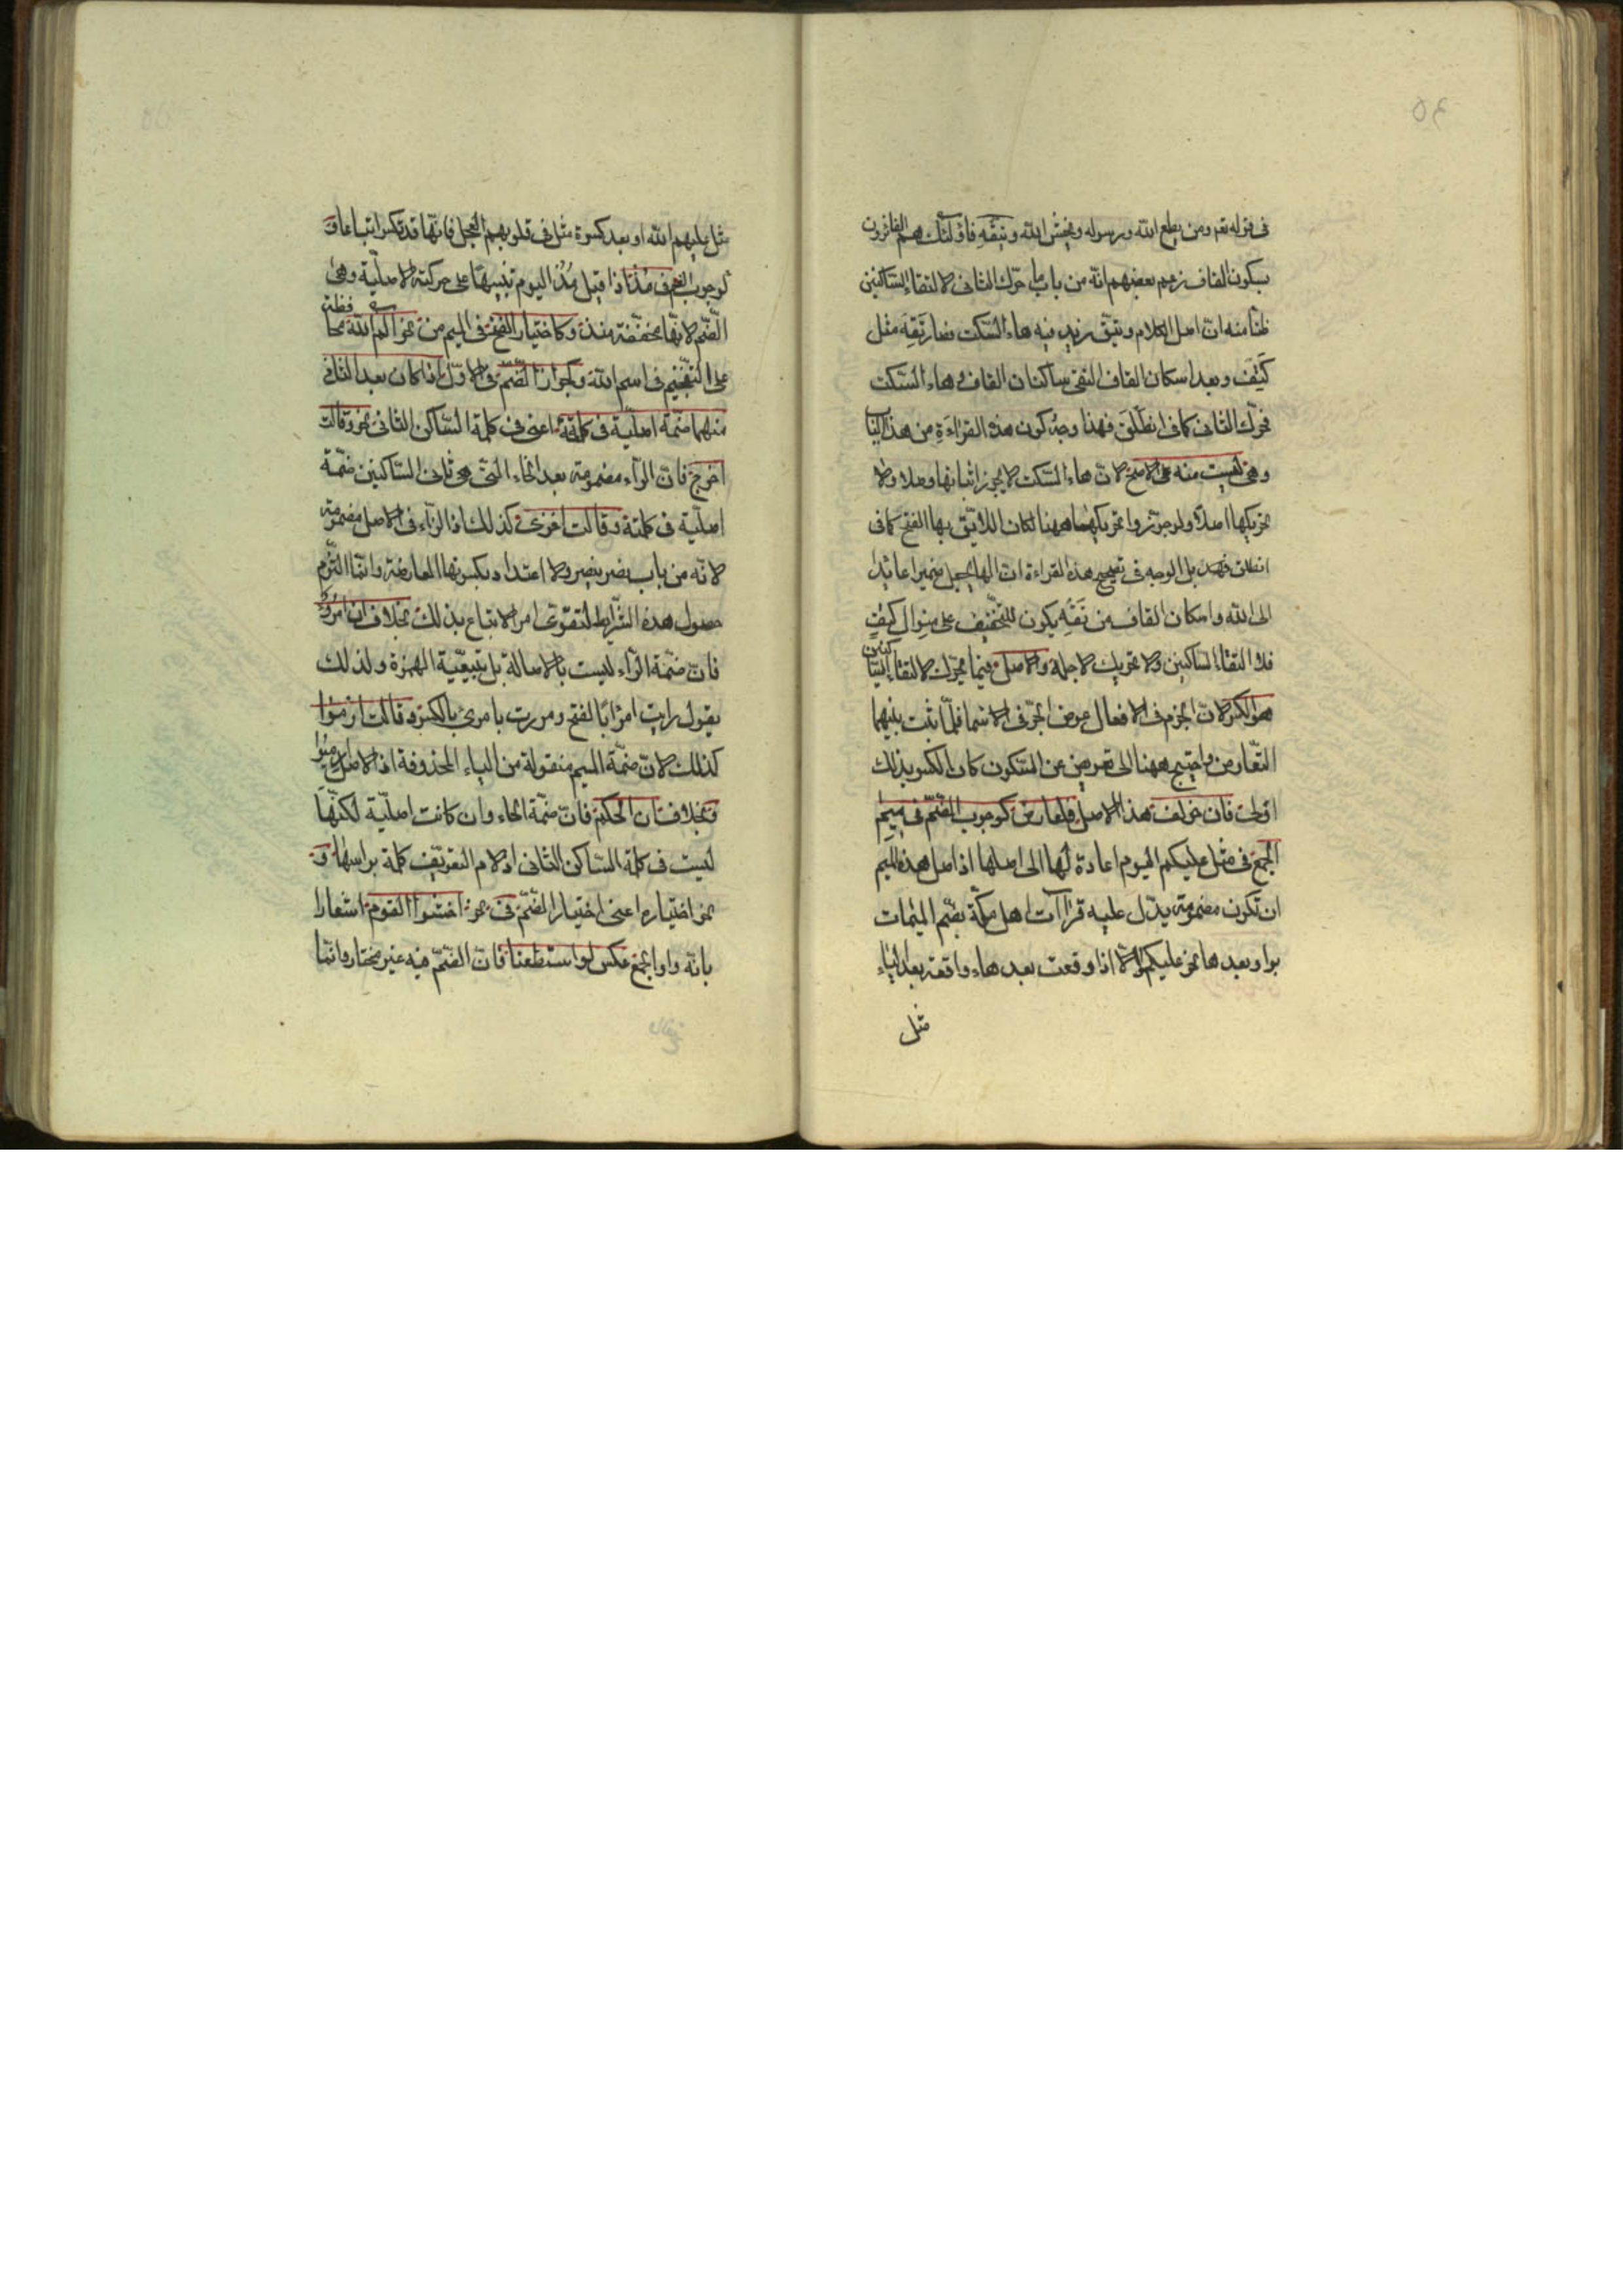 فى قوله تعم ومن يطع الله ورسوله ويخش الله ويتقه فاولئك هم الفائزون
بسكون القاف زعم بعضهم انّه من باب ما حرّك الثانى لالتقاء الساكنين
ظنّا منه انّ اصل الكلام ويتّق زيد فيه هاء السّكت فصار تَقِهَ مثل
كَتِف وبعد اسكان القاف التقى ساكنان القاف وهاء السّكت
فحرّك الثانى كما فى انطَلْقَ فهذا وجه كون هذه القراءة من هذا الباب
وهى ليست منه على الاصح لانّ هاء السّكت لا يجوز اثباتها وصلا ولا
تحريكها اصلا ولو جوّزوا تحريكها ههنا لكان اللايق بها الفتح كما فى
انطلق فهـ بل الوجه فى تصحيح هذه القراءة ان الها يجعل ضميرا عائدا
الى الله واسكان القاف من تَقِهِ يكون للتخفيف على منوال كتِفٍ
فلا التقاء الساكنين ولا تحريك لاجله والاصل فيما يحرّك لالتقاء الساكنين
هو الكسر لانّ الجزم فى الافعال عوض الجرّ فى الاسما فلمّا ثبت بينهما
التّعارض واحتيج ههنا الى تعويض عن السّكون كان الكسر بذلك
اولى فان خولف هذا الاصل فلعارض كوجوب الضّم فى ميم
الجمع فى مثل عليكم اليوم اعادة لها الى اصلها اذ اصل هذه الميم
ان تكون مضمومة يدلّ عليه قراآت اهل مكّة بضم الميمات
بواو بعدها نحو عليكم الا اذا وقعت بعد هاء واقعة بعد الياء
مثل
مثل عليهم الله او بعد كسرة مثل فى قلوبهم العجل فانّها قد تكسر اتباعا وَ
لوجوب الضم فى مُذ اذا قيل مُذُ اليوم تنبيها على حركته الاصليّة وهى
الضّم لانّها مخففة منذ وكاختيار الفتح فى الميم من نحو الم الله محافظة
على التفخيم فى اسم الله وكجواز الضّم فى الاوّل اذا كان بعد الثانى
منهما ضمّة اصليّة فى كلمته اعنى فى كلمة السّاكن الثانى نحو وقالت
اخرج فانّ الرّاء مضمومة بعد الخاء التى هى ثانى السّاكنين ضمّة
اصليّة فى كلمته وقالت اغزى كذلك اذ الزاء فى الاصل مضمومة
لانّه من باب نصر ينصر ولا اعتداد بكسرتها العارضة وانّما التزم
حصول هذه الشّرايط لتقوّى امر الاتباع بذلك بخلاف ان امرؤ
فانّ ضمّة الرّاء ليست بالاصالة بل بتبعيّة الهمزة ولذلك
يقول رايت امرًا بالفتح ومررت بامرئ بالكسر وقالت ارموا
كذلك لانّ ضمّة الميم منقولة من الياء المحذوفة اذ الاصل ارميوا
وبخلاف ان الحكم فانّ ضمّة الحاء وان كانت اصليّة لكنّها
ليست فى كلمة السّاكن الثانى اذ لام التعريف كلمة براسها وَ
نحو اختياره اعنى اختيار الضّم فى نحو اخشوا القوم اشعارا
بانّه واو الجمع عكس لو استطعنا فانّ الضّم فيه غير مختار وانّما